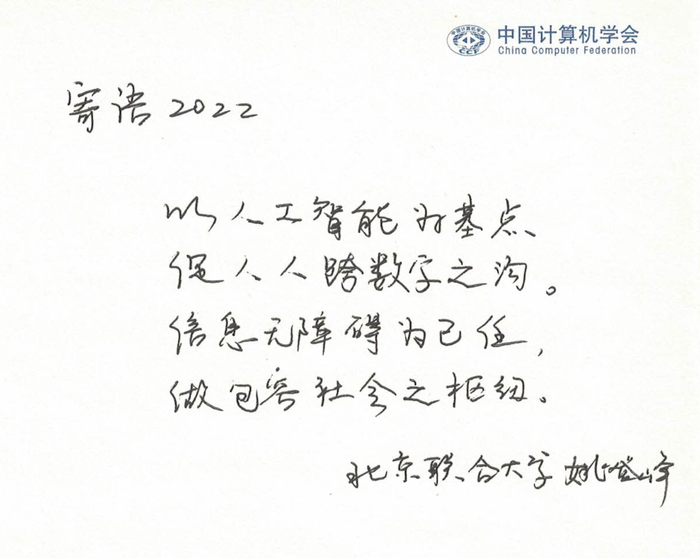 中国计算机学会
China Computer Federation
CCF
寄语 2022
以人工智能为基点、
促人人跨数字之沟。
信息无障碍为己任,
做包容社会之枢纽。
北京联合大学 姚登峰